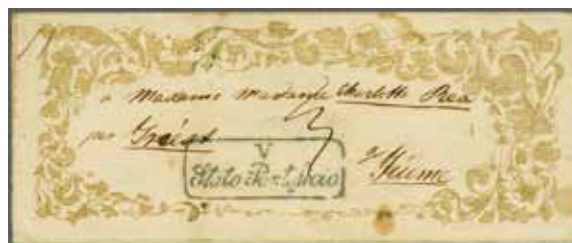 a Madame Madame Charlotte Rea
par Triest
V
Stato Pontificio
a Fiume